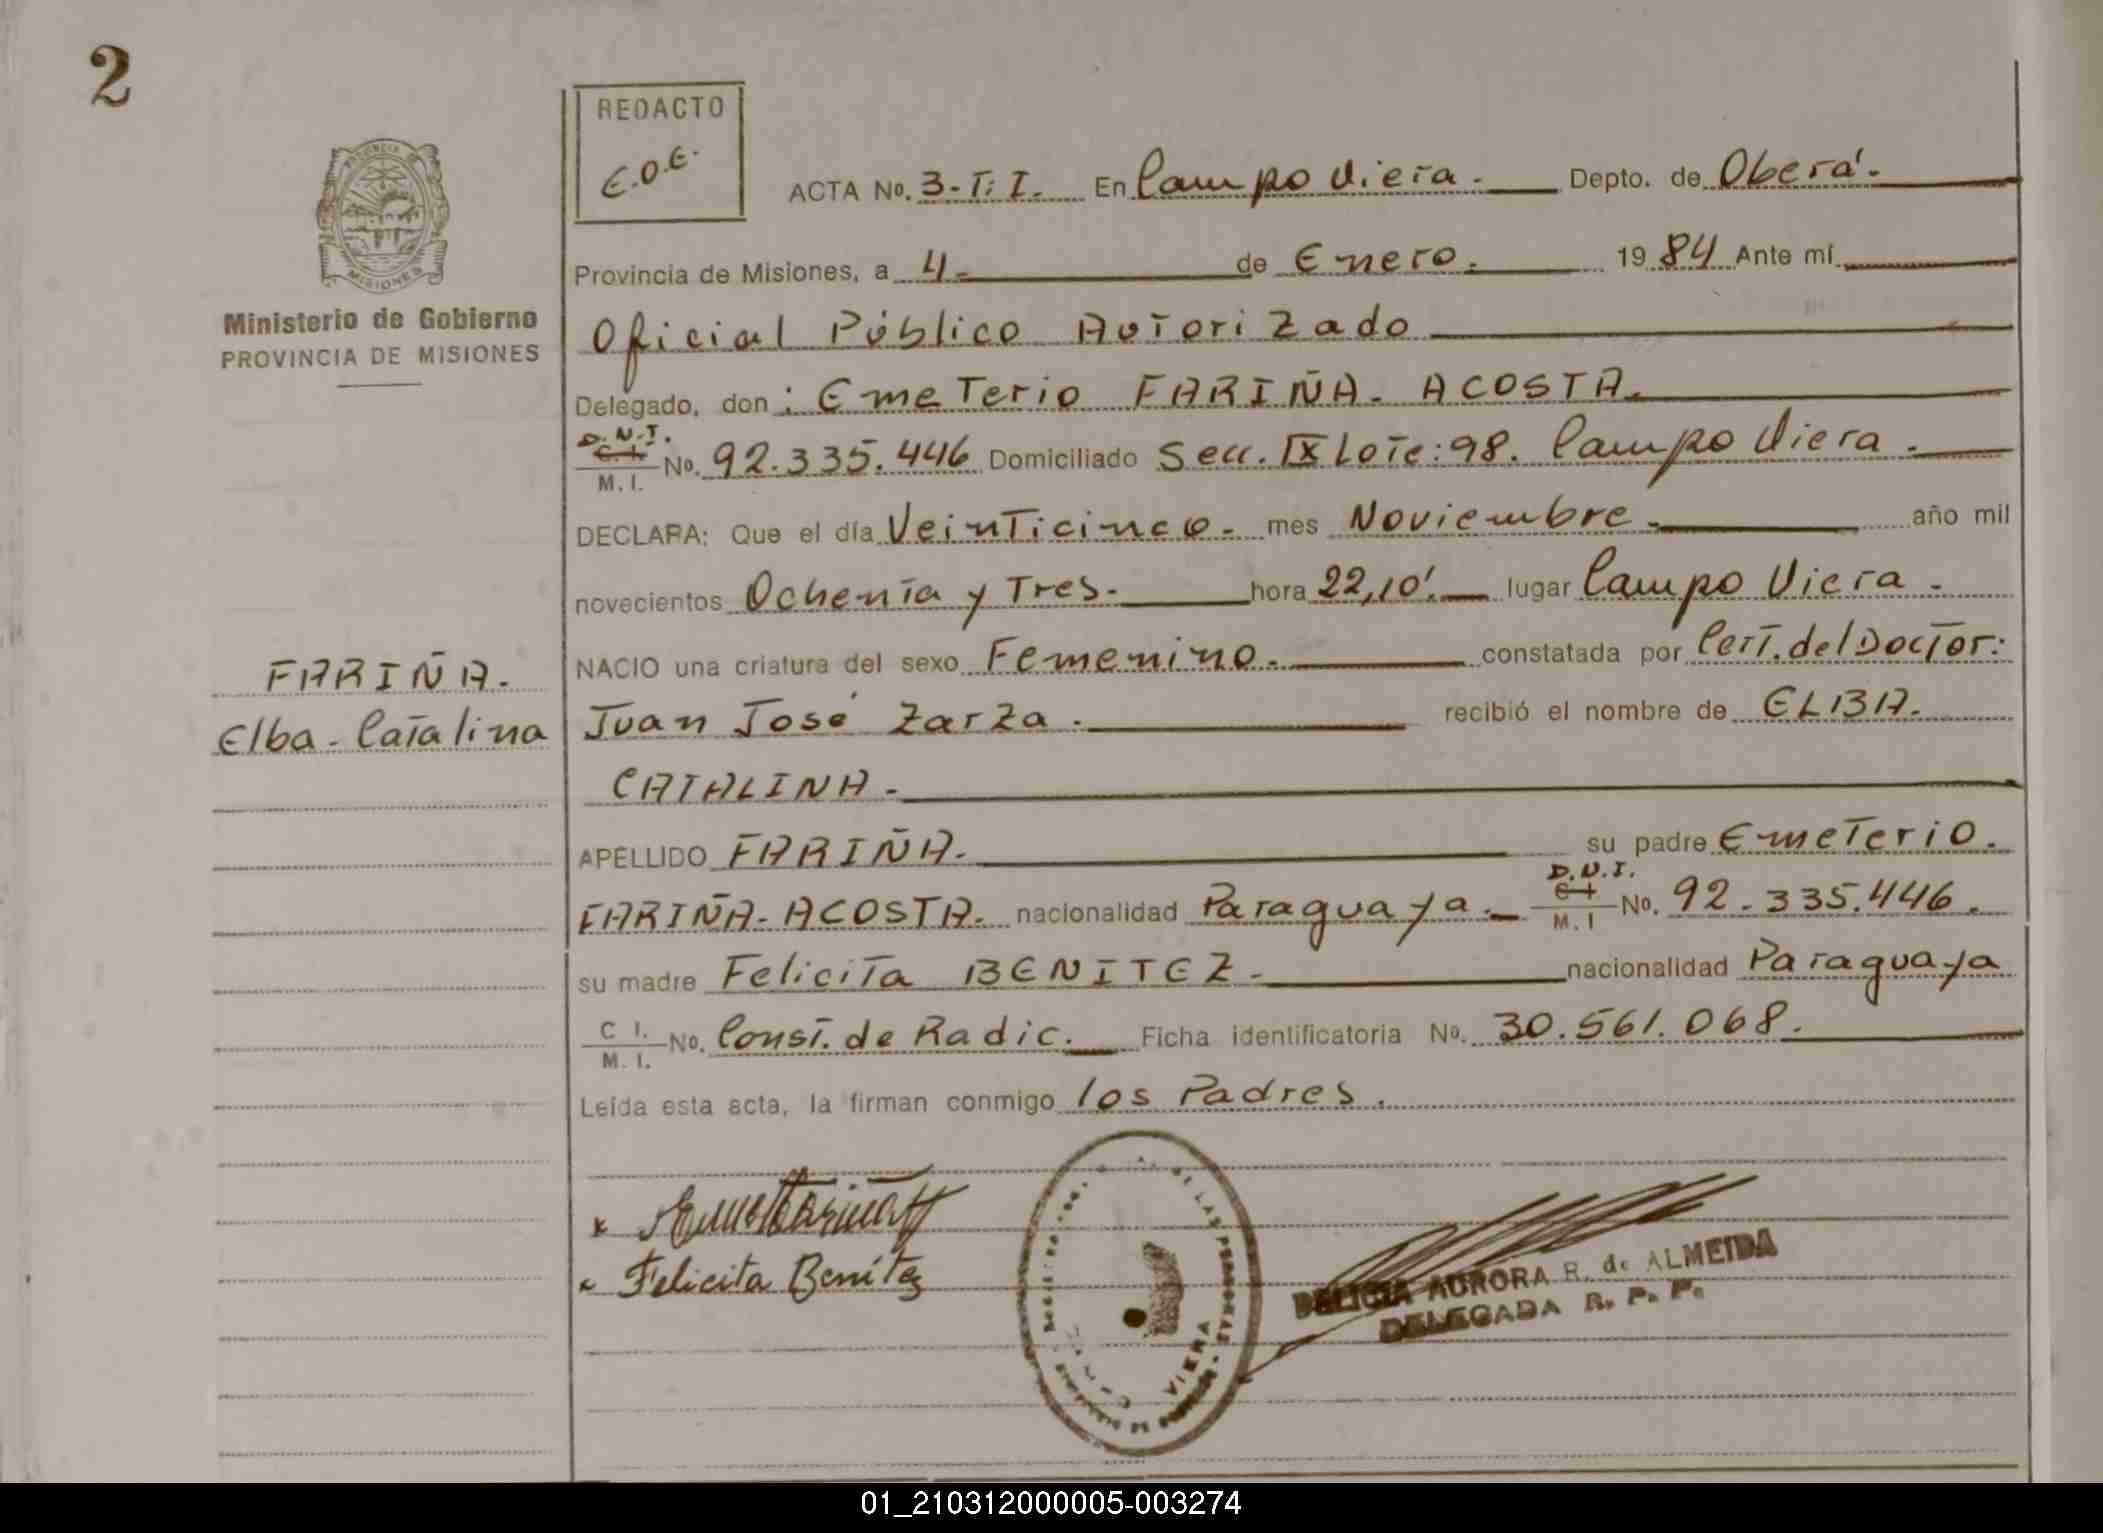 2
REDACTO
E.O.E.
ACTA No. 3-T: I. En Campo Viera. Depto. de Oberá.
PROVINCIA DE
MISIONES
Ministerio de Gobierno
PROVINCIA DE MISIONES
Provincia de Misiones, a 4. de Enero. 1984 Ante mí
Oficial Público Autorizado
Delegado, don: Emeterio FARIÑA. ACOSTA.
D.N.I.
C. I.
M. I. No. 92.335.446 Domiciliado Secc. IX Lote: 98. Campo Viera.
DECLARA: Que el día Veinticinco. mes Noviembre. año mil
novecientos Ochenta y Tres. hora 22,10'. lugar Campo Viera.
NACIO una criatura del sexo Femenino. constatada por Cert. del Doctor:
FARIÑA.
Elba. Catalina
Juan José Zarza. recibió el nombre de ELBA.
CATALINA.
APELLIDO FARIÑA. su padre Emeterio.
FARIÑA. ACOSTA. nacionalidad Paraguaya.
D.N.I.
C I
M. I No. 92.335.446.
su madre Felicita BENITEZ. nacionalidad Paraguaya
C I.
M. I. No. Const. de Radic. Ficha identificatoria No. 30.561.068.
Leída esta acta, la firman conmigo los Padres.
Felicita Benítez
DE LAS PERSONAS
VIERA
DELICIA AURORA R. de ALMEIDA
DELEGADA R. P. P.
01_210312000005-003274